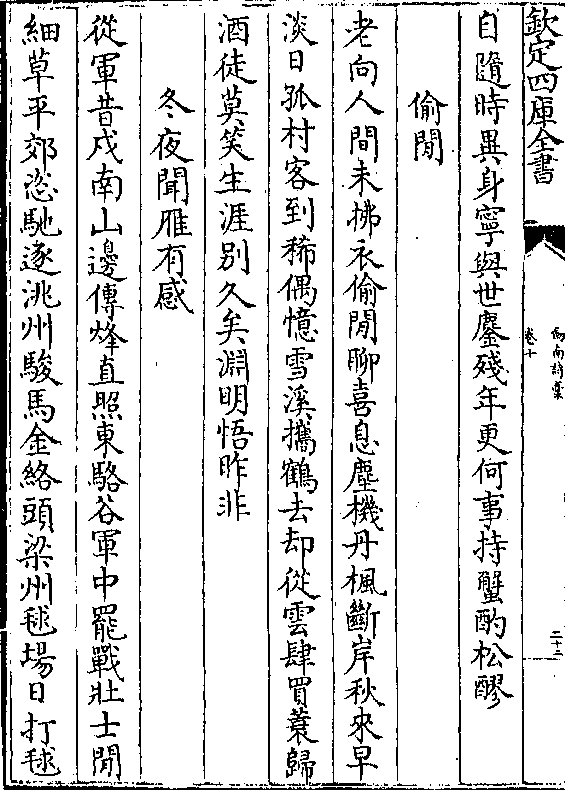 欽定四庫全書
劔南詩稾
卷十
二十二
自隨時異身寧與世鏖殘年更何事持蟹酌松醪
偷閒
老向人間未拂衣偷閒聊喜息塵機丹楓斷岸秋來早
淡日孤村客到稀偶憶雪溪攜鶴去却從雲肆買蓑歸
酒徒莫笑生涯别久矣淵明悟昨非
冬夜聞雁有感
從軍昔戍南山邊傳烽直照東駱谷軍中罷戰壯士閒
細草平郊恣馳逐洮州駿馬金絡頭梁州毬場日打毬